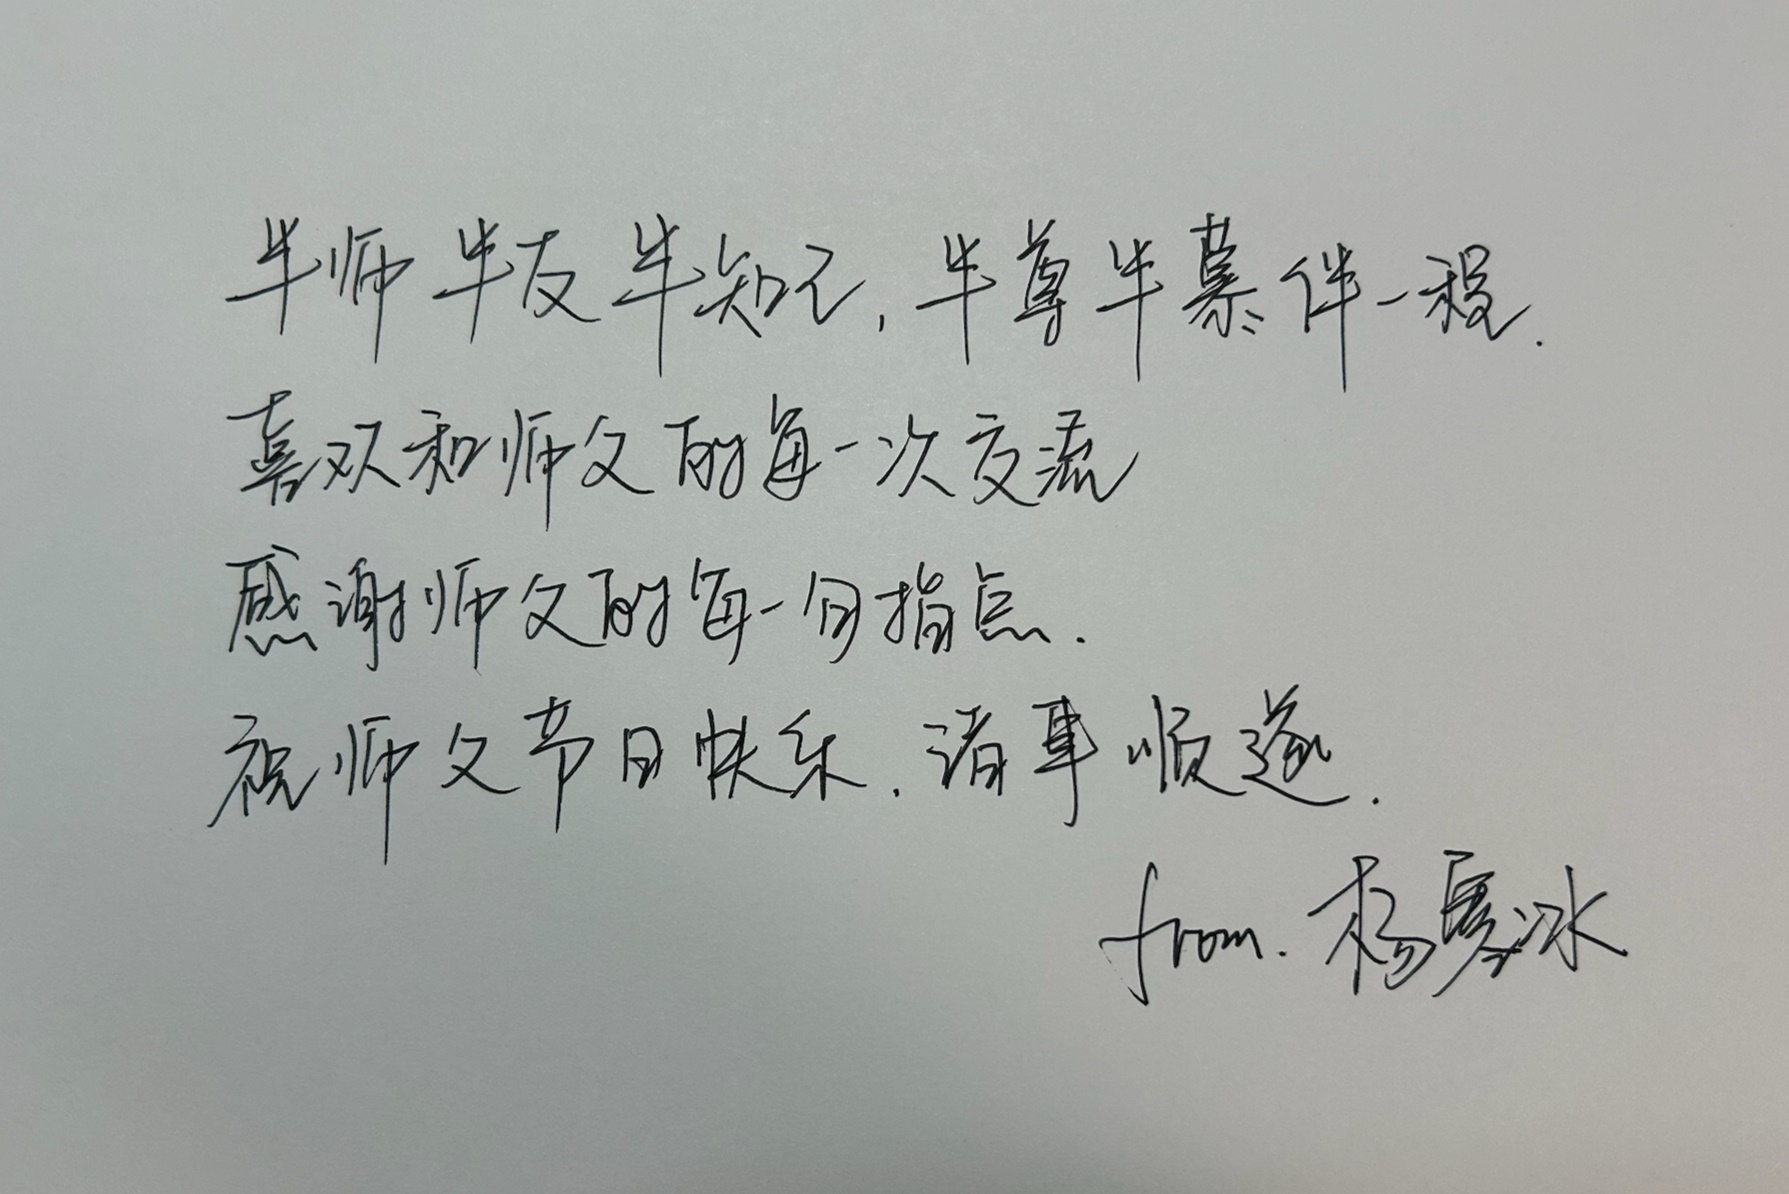 半师半友半知己,半尊半慕伴一程.
喜欢和师父的每一次交流
感谢师父的每一句指点.
祝师父节日快乐.诸事顺遂.
from.杨夏冰